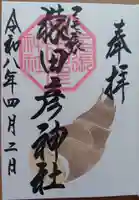 奉拝
猿田彦神社
令和八年四月二日